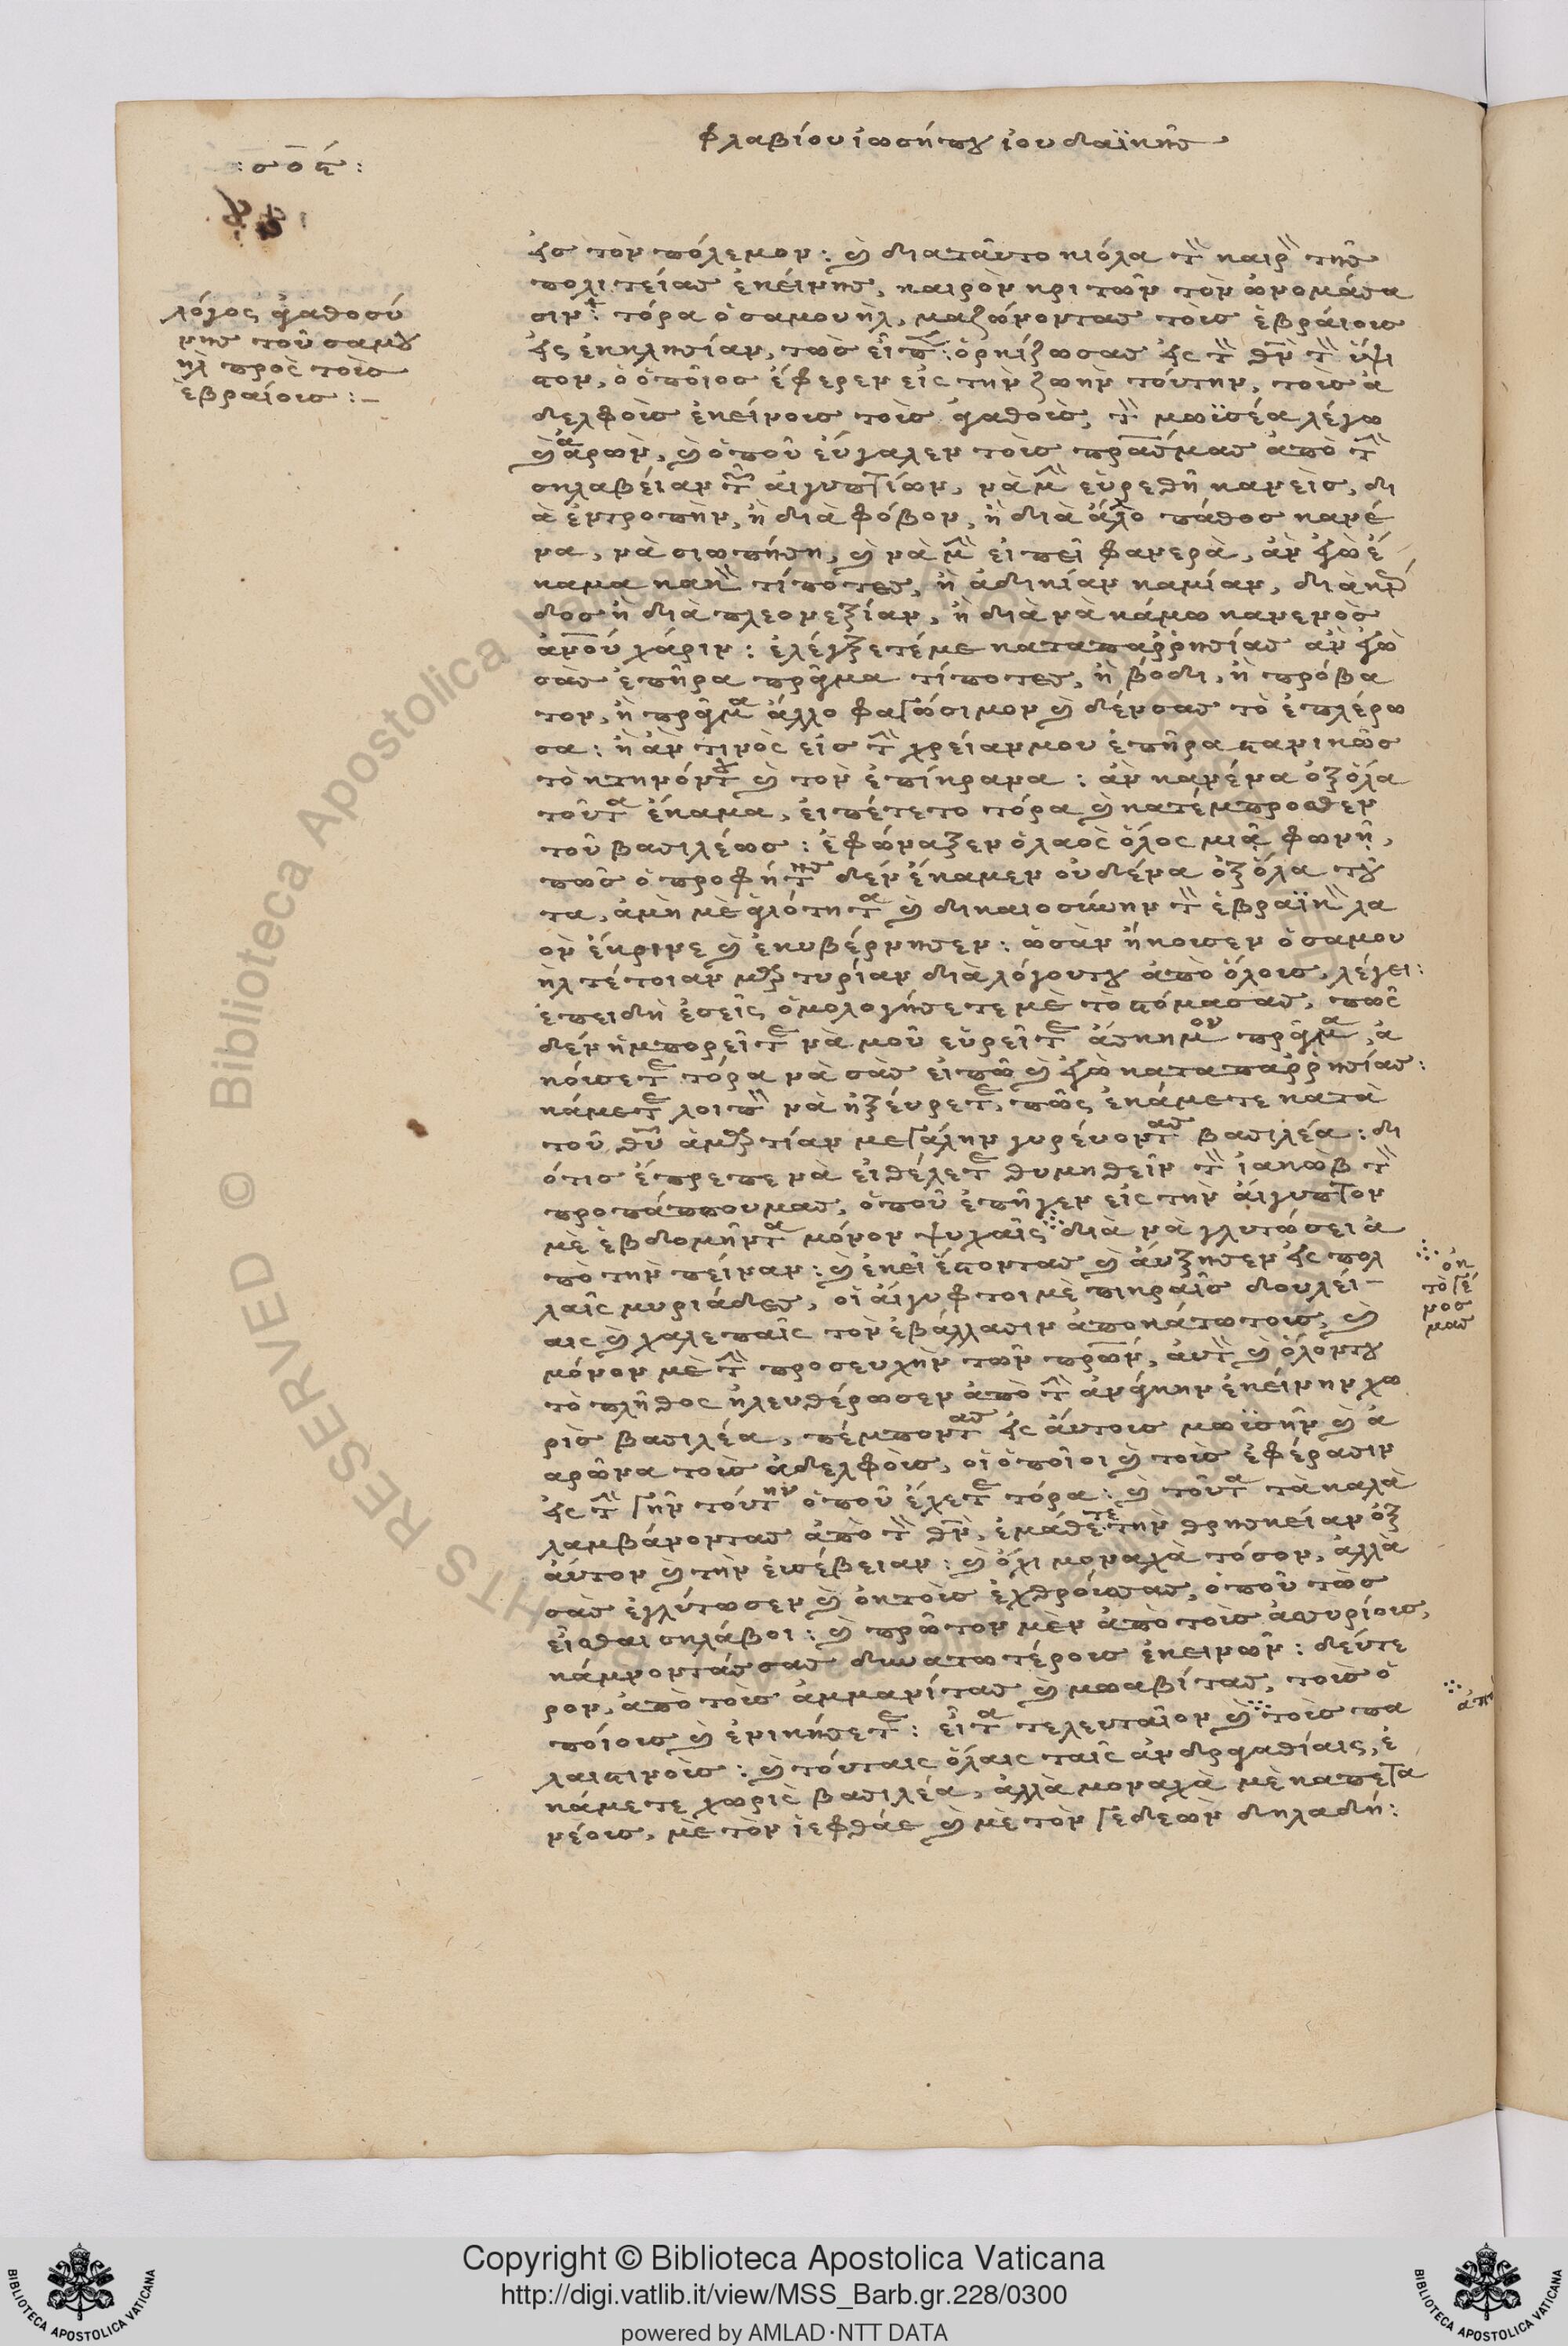 φλαβίου ἰωσήπου ἰουδαϊκῆς
λόγος ἀγαθοσύ
νης τοῦ σαμου
ὴλ πρὸς τοὺς
ἑβραίους :–
εἰς τὸν πόλεμον : καὶ διαταῦτο κιόλα τὸν καιρὸν τῆς
πολιτείας ἐκείνης, καιρὸν κριτῶν τὸν ὠνομάσα
σιν : τόρα ὁ σαμουὴλ, μαζώνοντας τοὺς ἑβραίους
εἰς ἐκκλησίαν, τῶς εἶπεν : ὁρκίζωσας εἰς τὸν θεὸν τὸν ὕψι
στον, ὁ ὁποῖος ἔφερεν εἰς τὴν ζωὴν τούτην, τοὺς ἀ
δελφοὺς ἐκείνους τοὺς ἀγαθοὺς, τὸν μωϊσέα λέγω
καὶ ἀαρὼν, καὶ ὁποῦ εὔγαλεν τοὺς πατέρας μας ἀπὸ τὴν
σκλαβείαν τῶν αἰγυπτίων, νὰ μὴν εὑρεθῆ κανεὶς, δι
ὰ ἐντροπὴν, ἢ διὰ φόβον, ἢ διὰ ἄλλο πάθος κανέ
να, νὰ σιωπήση, καὶ νὰ μὴν εἰπεῖ φανερὰ, ἂν ἐγὼ ἔ
καμα κακὸν τίποτες, ἢ ἀδικίαν καμίαν, διὰ κέρ
δος ἢ διὰ πλεονεξίαν, ἢ διὰ νὰ κάμω κανενὸς
ἀνθρώπου χάριν : ἐλέγξετέμε καταπαρρησίας ἂν ἐγὼ
σᾶς ἐπῆρα πρᾶγμα τίποτες, ἢ βόδι, ἢ πρόβα
τον, ἢ πρᾶγμα ἄλλο φαγώσιμον καὶ δένσας τὸ ἐπλέρω
σα : ἢ ἂν τινὸς εἰς τὴν χρείανμου ἐπῆρα στανικῶς
τὸ κτηνόντου καὶ τὸν ἐπίκρανα : ἂν κανένα ὀξ ὅλα
τοῦτα ἔκαμα, εἰπέτετο τόρα καὶ κατέμπροσθεν
τοῦ βασιλέως : ἐφώναξεν ὁ λαὸς ὅλος μιᾷ φωνῆ,
πῶς ὁ προφήτης δὲν ἔκαμεν οὐδένα ὀξ ὅλα τοῦ
τα, ἀμὴ μὲ ἁγιότητα καὶ δικαιοσύνην τὸν ἑβραϊκὸν λα
ὸν ἔκρινε καὶ ἐκυβέρνησεν : ὡσὰν ἤκουσεν ὁ σαμου
ὴλ τέτοιαν μαρτυρίαν διὰ λόγουτου ἀπὸ ὅλους, λέγει :
ἐπειδὴ ἐσεῖς ὁμολογήσετε μὲ τὸ στόμασας, πῶς
δὲν ἠμπορεῖτε νὰ μοῦ εὑρεῖτε ἄσκημον πρᾶγμα, ἀ
κούσετε τόρα νὰ σᾶς εἰπῶ καὶ ἐγὼ καταπαρρησίας :
κάμετε λοιπὸν νὰ ἠξεύρετε, πῶς ἐκάμετε κατὰ
τοῦ θεοῦ ἁμαρτίαν μεγάλην γυρεύοντας βασιλέα : δι
ότις ἔπρεπε νὰ εἰθέλετε θυμηθεῖν τὸν ἰακὼβ τὸν
προπάππουμας, ὁποῦ ἐπῆγεν εἰς τὴν αἴγυπτον
μὲ ἑβδομῆντα μόνον ψυχαῖς διὰ νὰ γλυτώσει ἀ
πὸ τὴν πείναν : καὶ ἐκεῖ ἔστοντας καὶ αὔξησεν εἰς πολ
λαῖς μυριάδες, οἱ αἴγυφτοι μὲ πικραῖς δουλεί–
αις καὶ χαλεπαῖς τὸν ἐβάλλασιν ἀποκάτωτους, καὶ
μόνον μὲ τὴν προσευχὴν τῶν πατέρων, αὐτὸν καὶ ὅλοντου
τὸ πλῆθος ἠλευθέρωσεν ἀπὸ τὴν ἀνάγκην ἐκείνην χω
ρὶς βασιλέα, πέμποντας εἰς αὔτους μωϋσῆν καὶ ἀ
αρῶνα τοὺς ἀδελφοὺς, οἱ ὁποῖοι καὶ τοὺς ἐφέρασιν
εἰς τὴν γῆν τούτην ὁποῦ ἔχετε τόρα : καὶ τοῦτα τὰ καλὰ
λαμβάνοντας ἀπὸ τὸν θεὸν, ἐμάθετε τὴν θρησκείαν ὀξ
αὔτον καὶ τὴν εὐσέβειαν : καὶ ὄχι μοναχὰ τόσον, ἀλλὰ
σᾶς ἐγλύτωσεν καὶ ὀκ τοὺς ἐχθρούςσας, ὁποῦ τῶς
εἶσθαι σκλάβοι : καὶ πρῶτον μὲν ἀπὸ τοὺς ἀσυρίους,
κάμνοντάςσας δυνατωτέρους ἐκεινῶν : δεύτε
ρον, ἀπὸ τοὺς ἀμμανίτας καὶ μωαβίτας, τοὺς ὁ
ποίους καὶ ἐνικήσετε : εἶτα τελευταῖον καὶ τοὺς πα
λαιστινοὺς : καὶ τούταις ὅλαις ταῖς ἀνδραγαθίαις, ἐ
κάμετε χωρὶς βασιλέα, ἀλλὰ μοναχὰ μὲ καπετα
νέους, μὲ τὸν ἰεφθάε καὶ μὲ τὸν γεδεὼν δηλαδή :
ὀκ
τὸ γέ
νος
μας
ἀπὸ
Copyright © Biblioteca Apostolica Vaticana
http://digi.vatlib.it/view/MSS_Barb.gr.228/0300
powered by AMLAD·NTT DATA
BIBLIOTECA APOSTOLICA VATICANA
BIBLIOTECA APOSTOLICA VATICANA
Biblioteca Apostolica Vaticana
© Biblioteca Apostolica Vaticana
RIGHTS RESERVED